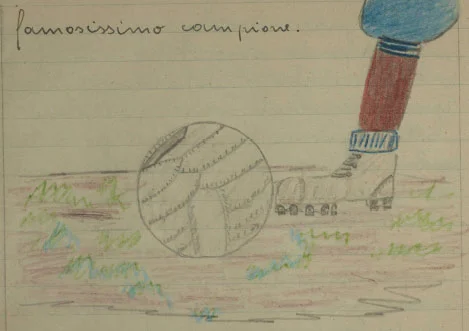 famosissimo campione.